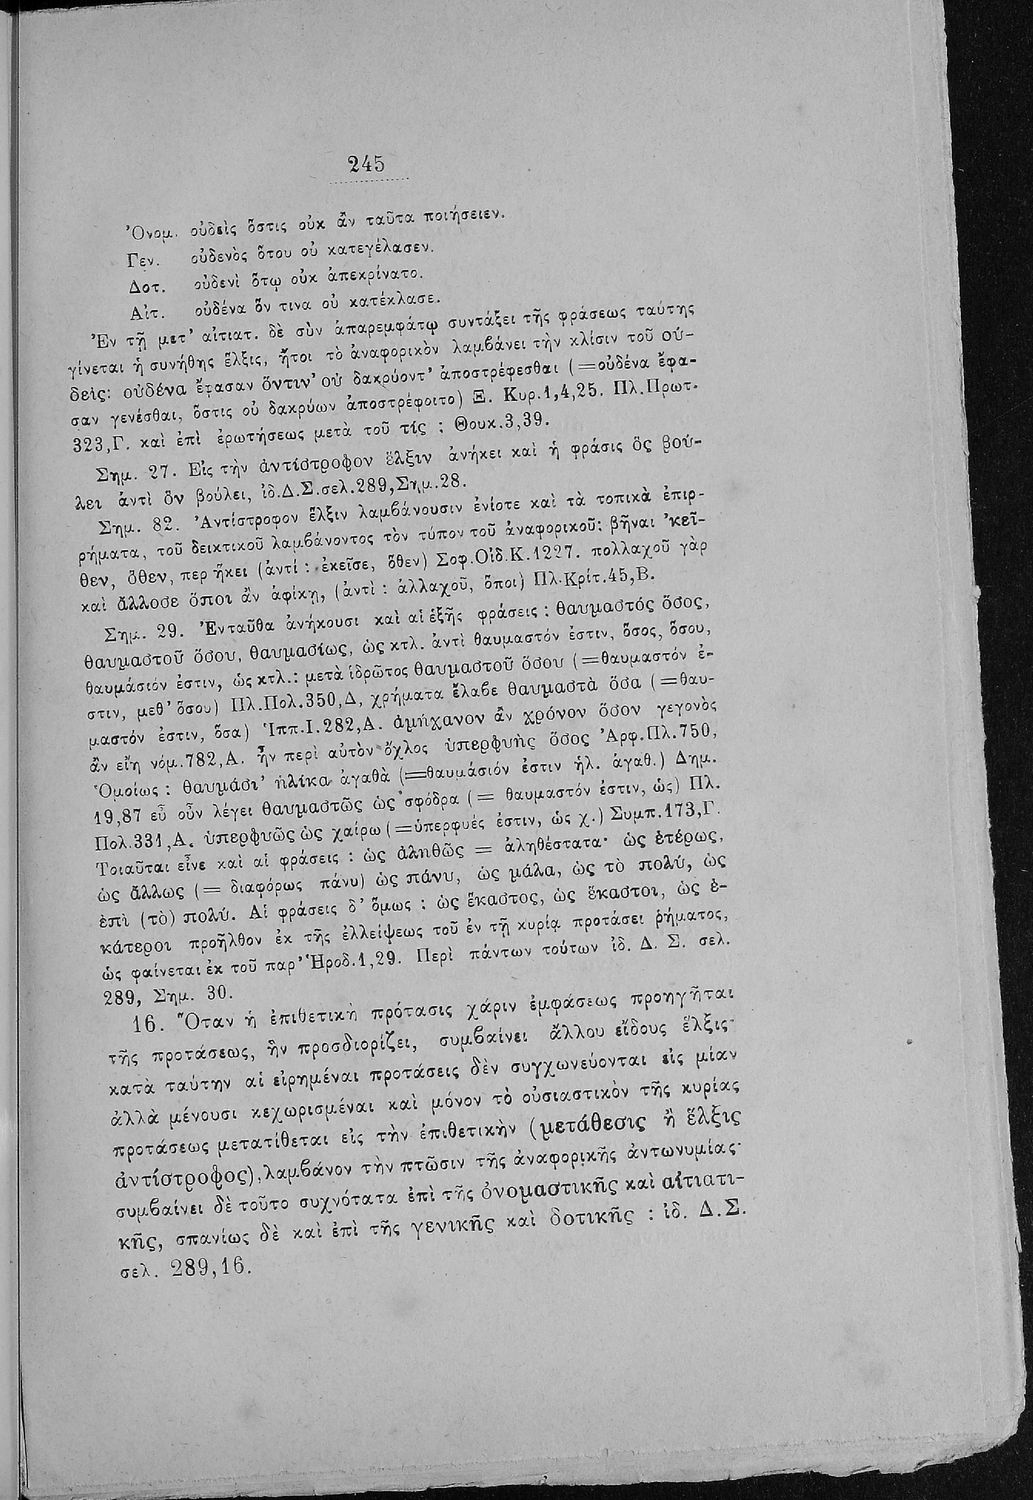 245
Ὀνομ. οὐδεὶς ὅστις οὐκ ἂν ταῦτα ποιήσειεν.
Γεν. οὐδενὸς ὅτου οὐ κατεγέλασεν.
Δοτ. οὐδενὶ ὅτῳ οὐκ ἀπεκρίνατο.
Αἰτ. οὐδένα ὅν τινα οὐ κατέκλασε.
Ἐν τῇ μετ' αἰτιατ. δὲ σὺν ἀπαρεμφάτῳ συντάξει τῆς φράσεως ταύτης
γίνεται ἡ συνήθης ἕλξις, ἤτοι τὸ ἀναφορικὸν λαμβάνει τὴν κλίσιν τοῦ οὐ-
δείς: οὐδένα ἔφασαν ὅντιν' οὐ δακρύοντ' ἀποστρέφεσθαι (=οὐδένα ἔφα-
σαν γενέσθαι, ὅστις οὐ δακρύων ἀποστρέφοιτο) Ξ. Κυρ.1,4,25. Πλ.Πρωτ.
323,Γ. καὶ ἐπὶ ἐρωτήσεως μετὰ τοῦ τίς : Θουκ.3,39.
Σημ. 27. Εἰς τὴν ἀντίστροφον ἕλξιν ἀνήκει καὶ ἡ φράσις ὃς βού-
λει ἀντὶ ὃν βούλει, ἰδ.Δ.Σ.σελ.289,Σημ.28.
Σημ. 82. Ἀντίστροφον ἕλξιν λαμβάνουσιν ἐνίοτε καὶ τὰ τοπικὰ ἐπιρ-
ρήματα, τοῦ δεικτικοῦ λαμβάνοντος τὸν τύπον τοῦ ἀναφορικοῦ: βῆναι 'κεῖ-
θεν, ὅθεν, περ ἥκει (ἀντί : ἐκεῖσε, ὅθεν) Σοφ.Οἰδ.Κ.1227. πολλαχοῦ γὰρ
καὶ ἄλλοσε ὅποι ἂν ἀφίκῃ, (ἀντὶ : ἀλλαχοῦ, ὅποι) Πλ.Κρίτ.45,Β.
Σημ. 29. Ἐνταῦθα ἀνήκουσι καὶ αἱ ἑξῆς φράσεις : θαυμαστός ὅσος,
θαυμαστοῦ ὅσου, θαυμασίως, ὡς κτλ. ἀντὶ θαυμαστόν ἐστιν, ὅσος, ὅσου,
θαυμάσιόν ἐστιν, ὡς κτλ.: μετὰ ἱδρῶτος θαυμαστοῦ ὅσου (=θαυμαστόν ἐ-
στιν, μεθ' ὅσου) Πλ.Πολ.350,Δ, χρήματα ἔλαβε θαυμαστὰ ὅσα (=θαυ-
μαστόν ἐστιν, ὅσα) Ἱππ.Ι.282,Α. ἀμήχανον ἂν χρόνον ὅσον γεγονὸς
ἂν εἴη νόμ.782,Α. ἦν περὶ αὐτὸν ὄχλος ὑπερφυὴς ὅσος Ἀρφ.Πλ.750,
Ὁμοίως : θαυμάσι' ἡλίκα ἀγαθὰ (=θαυμάσιόν ἐστιν ἡλ. ἀγαθ.) Δημ.
19,87 εὖ οὖν λέγει θαυμαστῶς ὡς σφόδρα (= θαυμαστόν ἐστιν, ὡς) Πλ.
Πολ.331,Α. ὑπερφυῶς ὡς χαίρω (=ὑπερφυές ἐστιν, ὡς χ.) Συμπ.173,Γ.
Τοιαῦται εἶνε καὶ αἱ φράσεις : ὡς ἀληθῶς = ἀληθέστατα· ὡς ἑτέρως,
ὡς ἄλλως (= διαφόρως πάνυ) ὡς πάνυ, ὡς μάλα, ὡς τὸ πολύ, ὡς
ἐπὶ (τὸ) πολύ. Αἱ φράσεις δ' ὅμως : ὡς ἕκαστος, ὡς ἕκαστοι, ὡς ἑ-
κάτεροι προῆλθον ἐκ τῆς ἐλλείψεως τοῦ ἐν τῇ κυρίᾳ προτάσει ῥήματος,
ὡς φαίνεται ἐκ τοῦ παρ' Ἡροδ.1,29. Περὶ πάντων τούτων ἰδ. Δ. Σ. σελ.
289, Σημ. 30.
16. Ὅταν ἡ ἐπιθετικὴ πρότασις χάριν ἐμφάσεως προηγῆται
τῆς προτάσεως, ἣν προσδιορίζει, συμβαίνει ἄλλου εἴδους ἕλξις·
κατὰ ταύτην αἱ εἰρημέναι προτάσεις δὲν συγχωνεύονται εἰς μίαν
ἀλλὰ μένουσι κεχωρισμέναι καὶ μόνον τὸ οὐσιαστικὸν τῆς κυρίας
προτάσεως μετατίθεται εἰς τὴν ἐπιθετικὴν (μετάθεσις ἢ ἕλξις
ἀντίστροφος), λαμβάνον τὴν πτῶσιν τῆς ἀναφορικῆς ἀντωνυμίας·
συμβαίνει δὲ τοῦτο συχνότατα ἐπὶ τῆς ὀνομαστικῆς καὶ αἰτιατι-
κῆς, σπανίως δὲ καὶ ἐπὶ τῆς γενικῆς καὶ δοτικῆς : ἰδ. Δ.Σ.
σελ. 289,16.